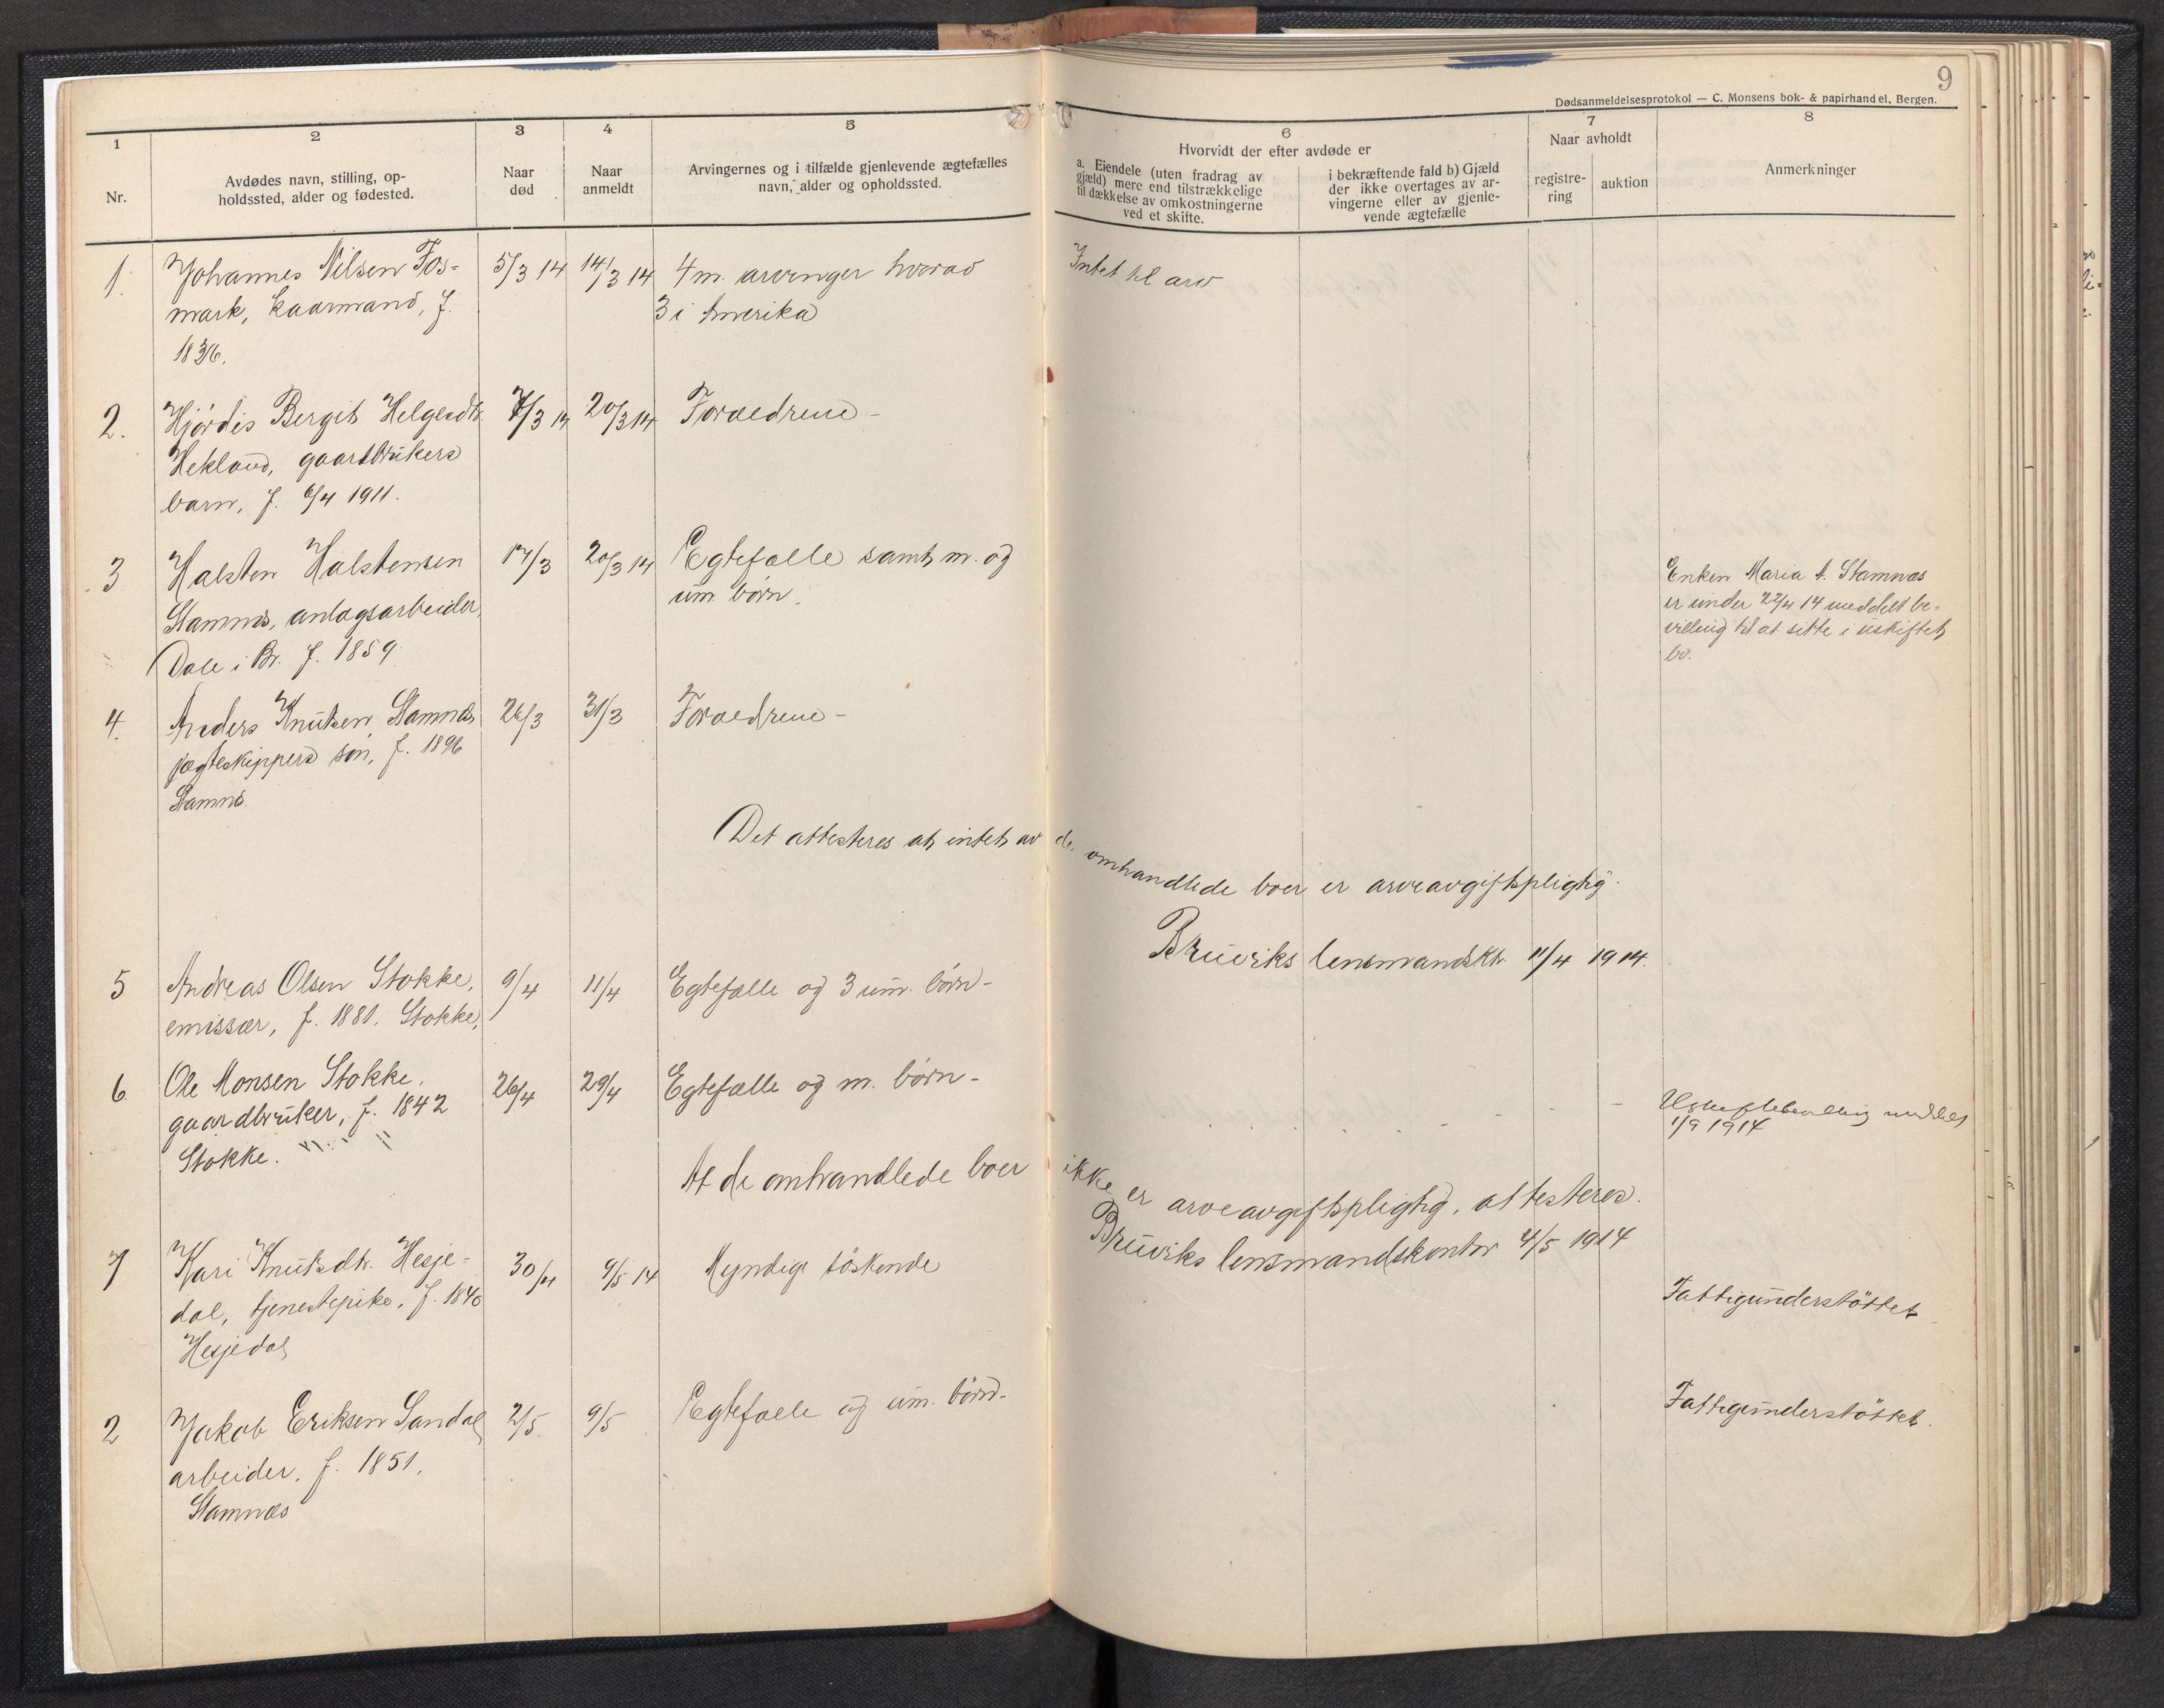 9
Dødsanmeldelsesprotokol — C. Monsens bok- & papirhandel, Bergen.
1
Nr.
2
Avdødes navn, stilling, op-
holdssted, alder og fødested.
3
Naar
død
4
Naar
anmeldt
5
Arvingernes og i tilfælde gjenlevende ægtefælles
navn, alder og opholdssted.
6
Hvorvidt der efter avdøde er
a. Eiendele (uten fradrag av
gjæld) mere end tilstrækkelige
til dækkelse av omkostningerne
ved et skifte.
i bekræftende fald b) Gjæld
der ikke overtages av ar-
vingerne eller av gjenle-
vende ægtefælle
7
Naar avholdt
registre-
ring
auktion
8
Anmerkninger
1. Johannes Nilsen Fos- 5/3 14 14/3 14 4 m. arvinger hvorav Intet til arv
mark, kaarmand, f. 3 i Amerika
1836.
2. Hjördis Bergit Helgesdtr. 7/3 14 20/3 14 Forældrene -
Hekland, gaardbrukers
barn, f. 6/4 1911.
3 Halsten Halstensen 17/3 20/3 14 Egtefælle samt m. og
Stamnes, anlagsarbeider, um børn.
Dale i Br. f. 1859
Enken Maria A. Stamnæs
er under 22/4 14 meddelt be-
villing til at sitte i uskiftet
bo.
4. Anders Knutsen Stamnæs 26/3 31/3 Forældrene -
jægteskippers søn, f. 1896
Stamnes.
Det attesteres at intet av de omhandlede boer er arveavgiftspligtig.
Bruviks lensmandsktr. 11/4 1914.
5 Andreas Olsen Stokke, 9/4 11/4 Egtefælle og 3 um. börn -
emissær, f. 1881. Stokke,
6 Ole Monsen Stokke, 26/4 29/4 Egtefælle og m. börn -
gaardbruker, f. 1842
Stokke.
Uskiftebevilling meddelt
1/9 1914
At de omhandlede boer ikke er arveavgiftspligtig, attesteres.
Bruviks lensmandskontor 4/5 1914
7 Kari Knutsdtr. Hesje- 30/4 9/5 14 Myndige söskende
dal, tjenestepike, f. 1840
Hesjedal
Fattigunderstöttet
2 Jakob Eriksen Sandal 2/5 9/5 Egtefælle og um. börn - Fattigunderstöttet.
arbeider, f. 1851.
Stamnæs